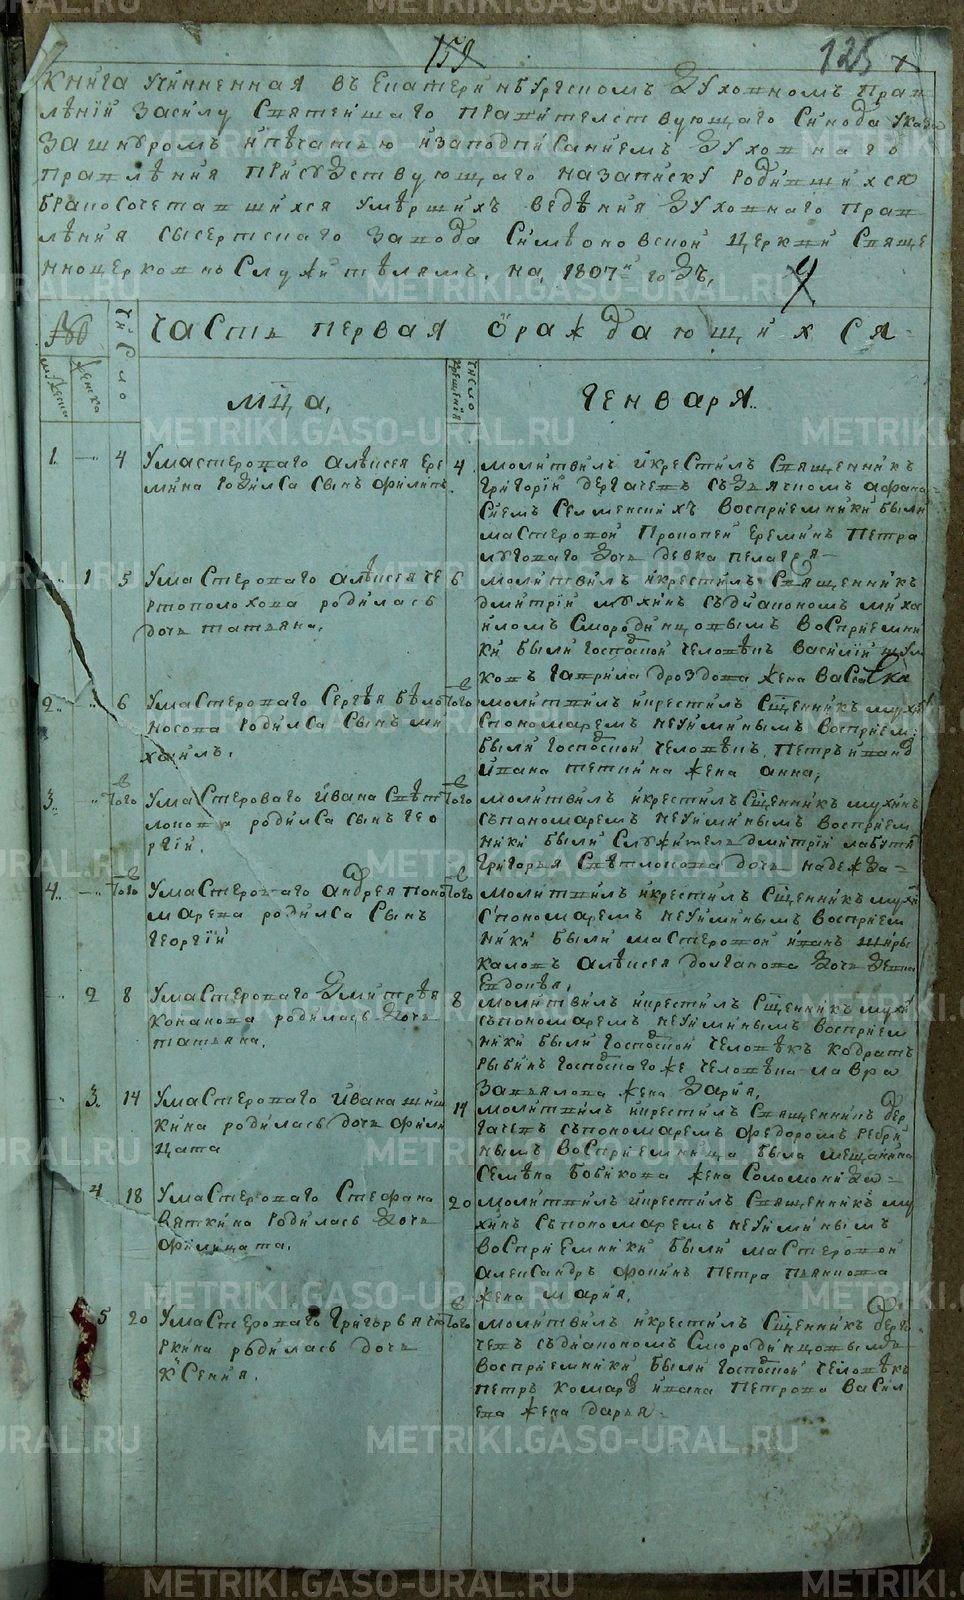 159
125
Книга учиненная въ Екатеринбургскомъ Духовномъ Прав
лѣнїи Засилу Святейшаго Правителствующаго Синода Указа
За шнуромъ ипѣчатью изаподписаниемъ Духовнаго
Правлѣния Присудствующаго Назаписку Родившихся
Бракосочетавшихся Умѣршихъ Ведѣния Духовнаго Прав
лѣния Сысертскаго Завода Симѣоновской Церкви Свяще
нноцерковнослужителямъ, на 1807й годъ,
Число
Часть первая ораждающихся
мужеска
женска
Мца,
Число крещения
Генваря
1. — 4 Умастероваго Алѣксея Ере
мина родился сынъ Филипъ.
4 молитвилъ икрестилъ Священникъ
Григорїй Дергачевъ съдьячкомъ Афана
сиемъ Селменскихъ Восприемники были
мастеровой Прокопей Ереминъ Петра
Луговаго дочь девка Пелагея
1 5 Умастероваго Алѣксея Че
ртополохова родилась
дочь татьяна,
6 молитвилъ икрестилъ Священникъ
Дмитрїи мухинъ съдиакономъ миха
иломъ Смородинцовымъ Восприемни
ки были господской человѣкъ Василїй Шум
ковъ Гаврила Дроздова жена Васса
2 6 Умастероваго Сергѣя Бѣло
носова родился сынъ ми
хаилъ.
Того молитвилъ икрестилъ Сщенникъ мухи
спономаремъ Неуиминымъ Восприем:
были господской человѣкъ Петръ ивановъ
ивана теткина жена анна,
3 Того Умастероваго ивана Свѣт
локова родился сынъ гео
ргїй.
Того молитвилъ икрестилъ Сщенникъ мухинъ
съпономаремъ Неуиминымъ Восприем
ники были Служитель дмитрїй
Григорья Свѣтлокова дочь надежда
4 Того Умастероваго андрея поно
марева родился сынъ
георгїй
Того молитвилъ икрестилъ Сщенникъ мухи
спономаремъ Неуиминымъ Восприем
ники были мастеровой иванъ
Алѣксея Долганова дочь девка
Евдокѣя,
2 8 Умастероваго Дмитрѣя
Конакова родилась дочь
татьяна.
8 молитвилъ икрестилъ Сщенникъ мухи
съпономаремъ Неуиминымъ Восприем
ники были господской человѣкъ Кодратъ
Рыбинъ господскагоже человѣка Лавра
Завьялова жена Дария,
3 14 Умастероваго ивана шиш
кина родилась дочь Фили
цата
14 молитвилъ икрестилъ Священникъ дер
гачевъ съпономаремъ Федоромъ Ребри
нымъ Восприемница была мещанина
Семѣна Бобикова жена Соломонида
4 18 Умастероваго Стефана
Вяткина родилась дочь
Филицата.
20 молитвилъ икрестилъ Священникъ му
хинъ съпономаремъ Неуиминымъ
Восприемники были мастеровой
Александръ Фокинъ Петра Пьянкова
жена мария,
5 20 Умастероваго Григорья
ркина родилась дочь
Ксения.
Того молитвилъ икрестилъ Сщенникъ Дерга
чевъ съдиакономъ Смородинцовымъ
Восприемники были господской человѣкъ
Петръ Комаровъ ивана Петрова Васил
ева жена Дарья
METRIKI.GASO-URAL.RU